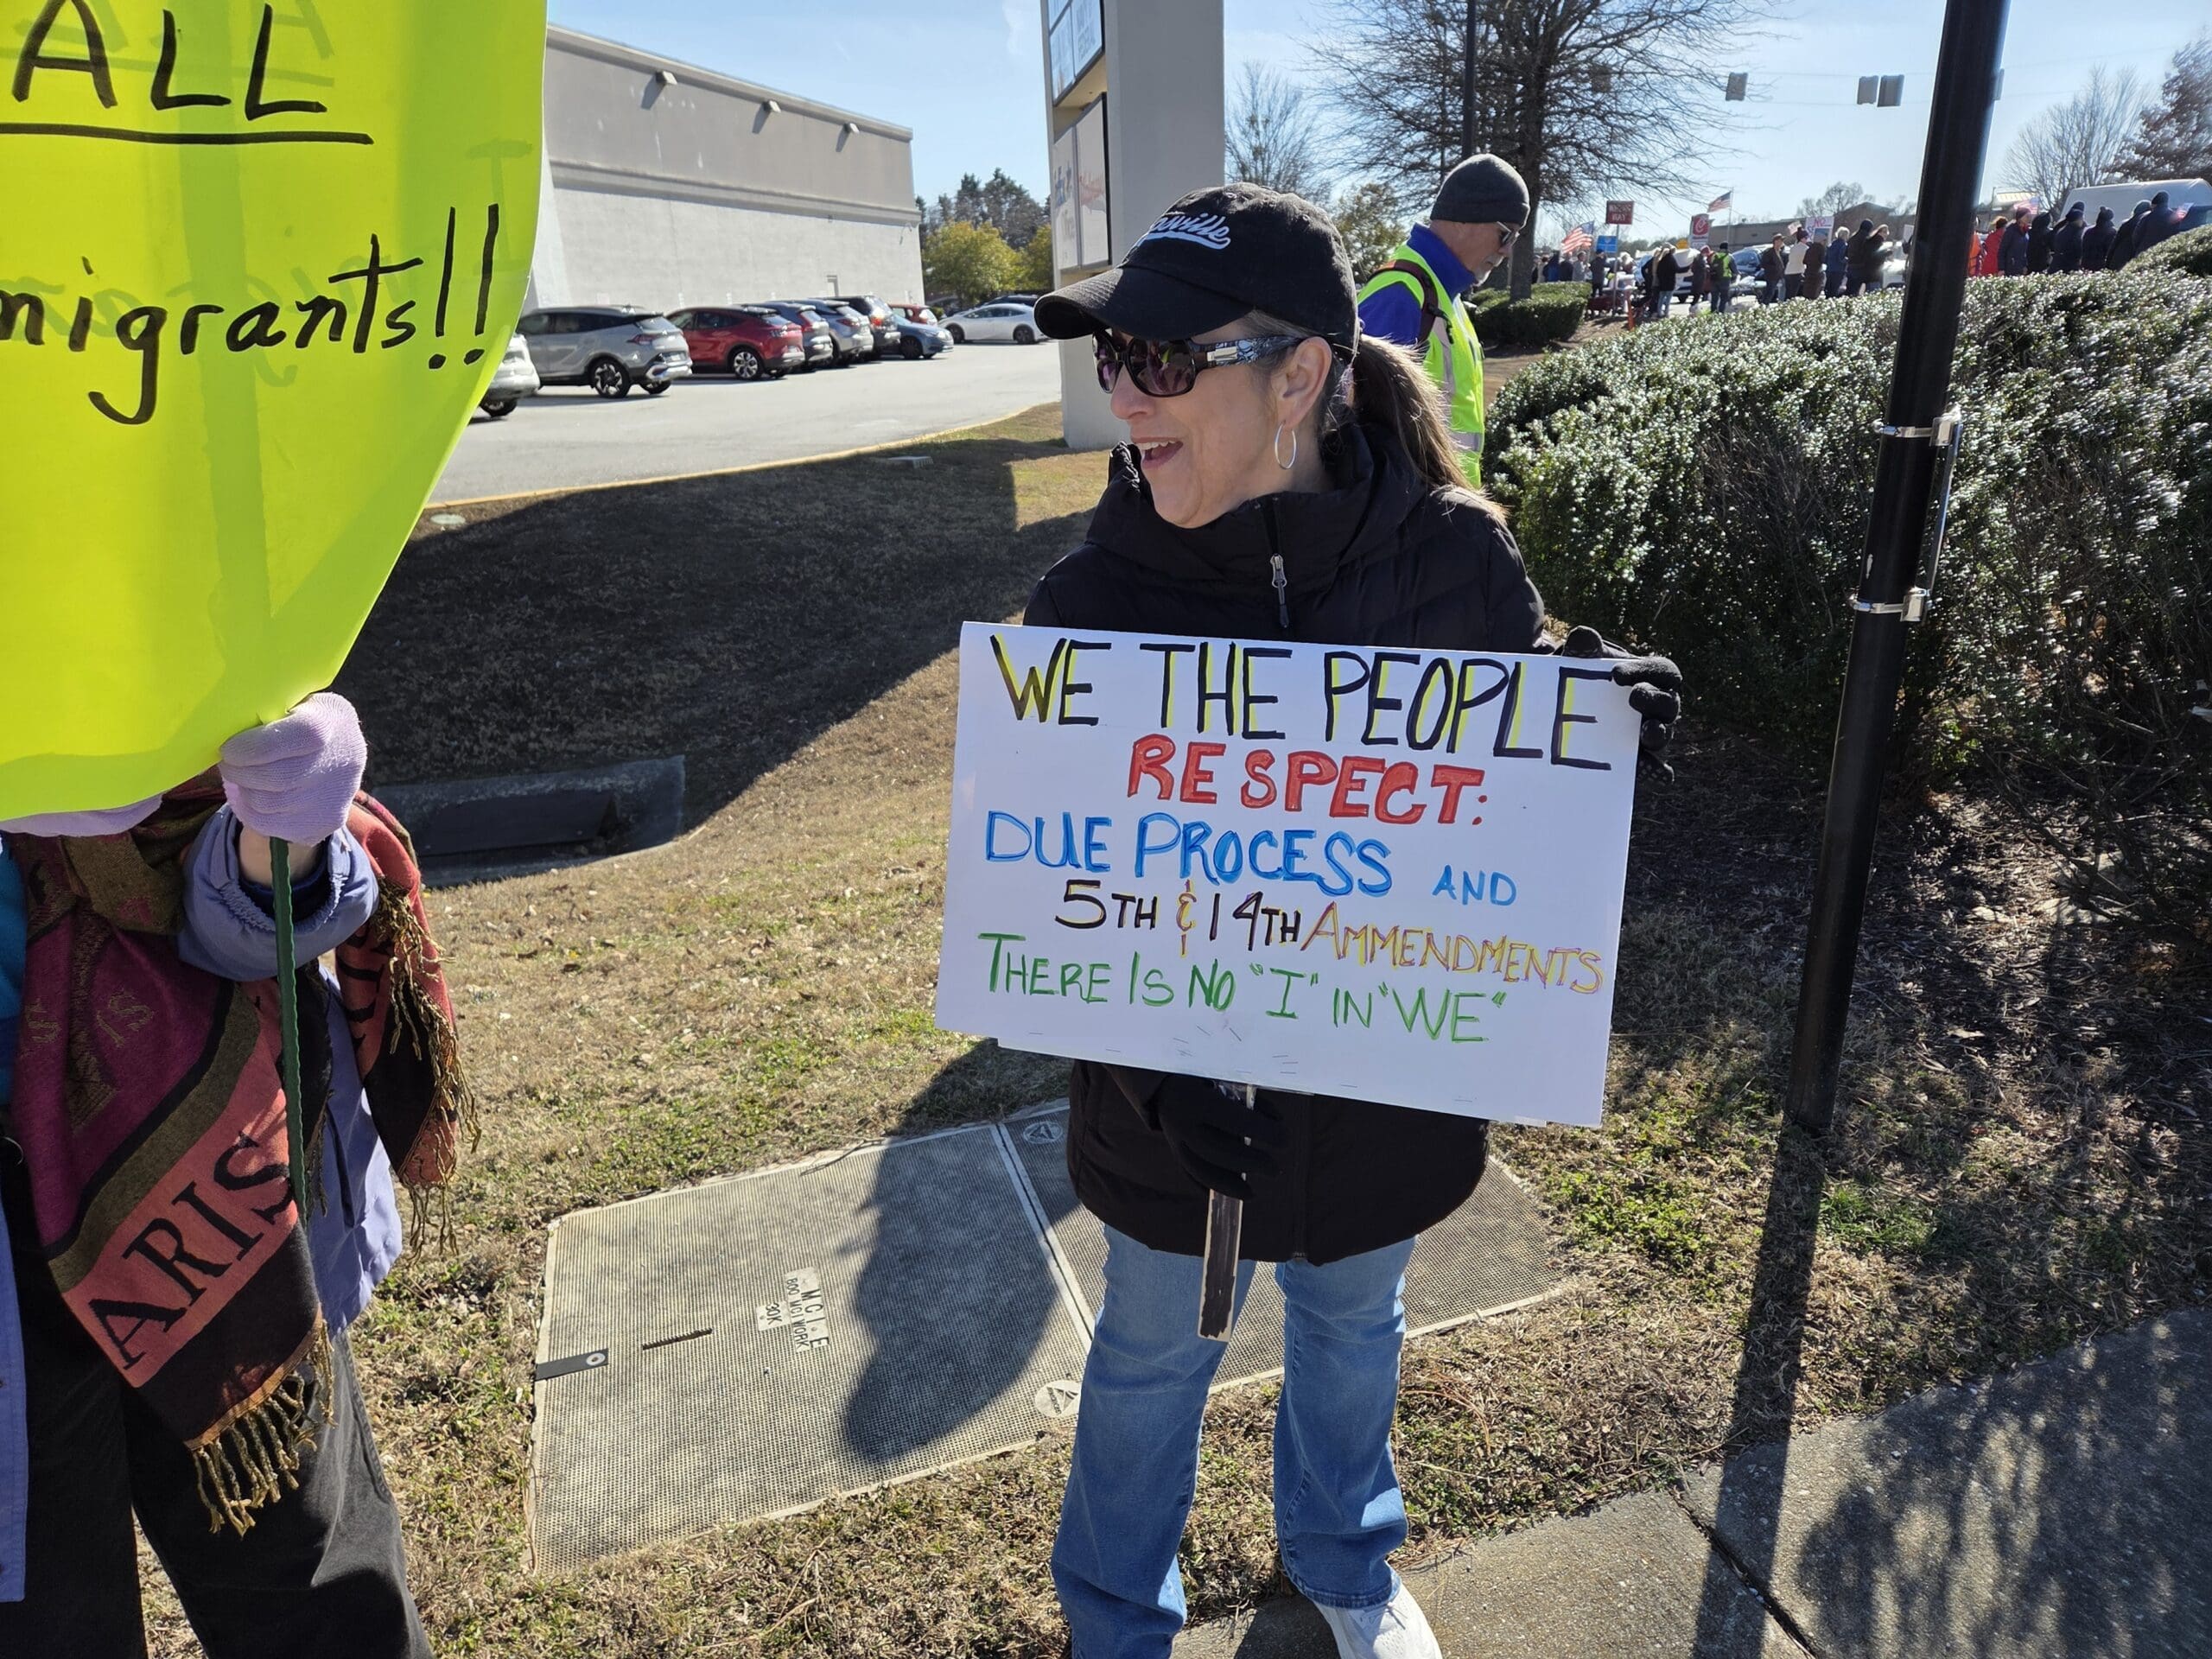 ALL
migrants!!
WE THE PEOPLE
RESPECT:
DUE PROCESS AND
5TH & 14TH AMMENDMENTS
THERE IS NO "I" IN "WE"
ARIS
M.C.I.E